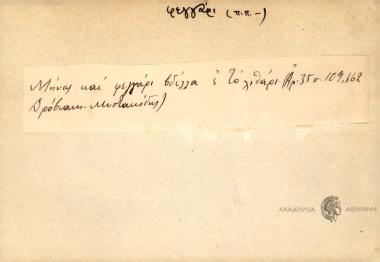 φεγγάρι (π.π. –)
Μήνας και φεγγάρι βδέλλα ς το λιθάρι (Αρ. 35 σ. 109, 162
Δρόβιανη - Μυστακίδης)
ΑΚΑΔΗΜΙΑ ΑΘΗΝΩΝ